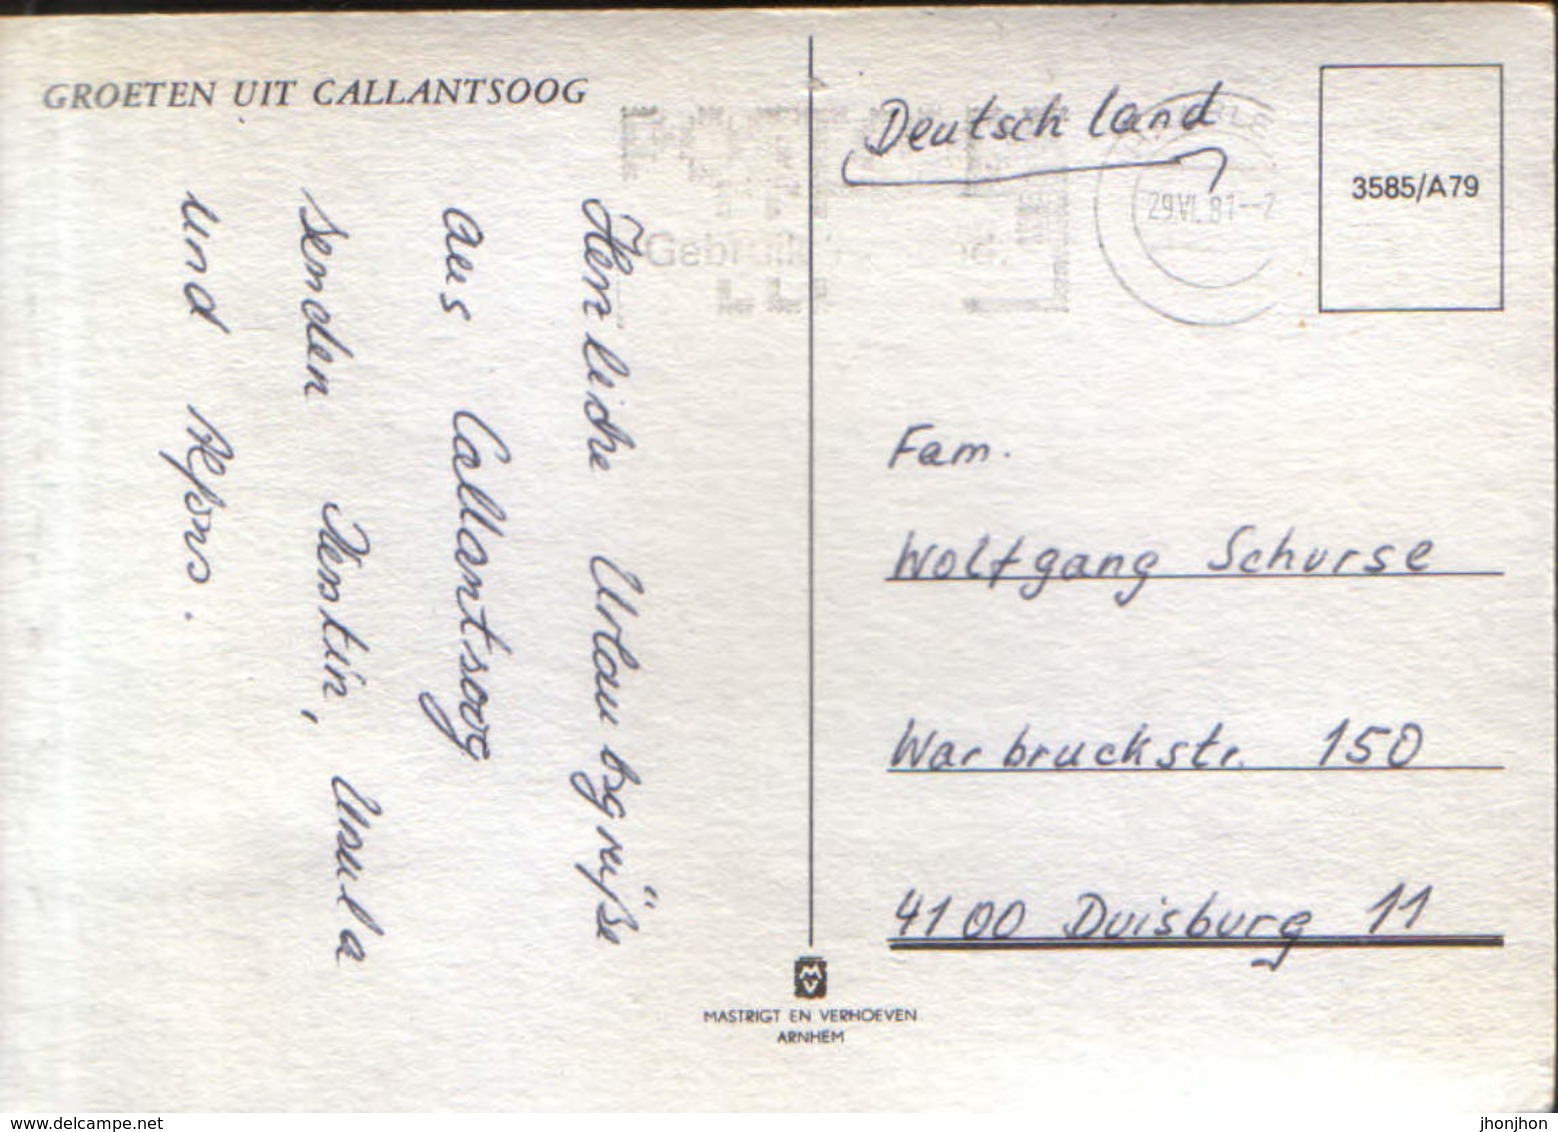 GROETEN UIT CALLANTSOOG
Herzliche Urlaubsgrüße
aus Callantsoog
senden Kerstin, Ursula
und Alfons.
Deutschland
29.VI.81--2
3585/A79
Fam.
Wolfgang Schurse
Warbruckstr. 150
4100 Duisburg 11
MV
MASTRIGT EN VERHOEVEN
ARNHEM
www.delcampe.net
jhonjhon